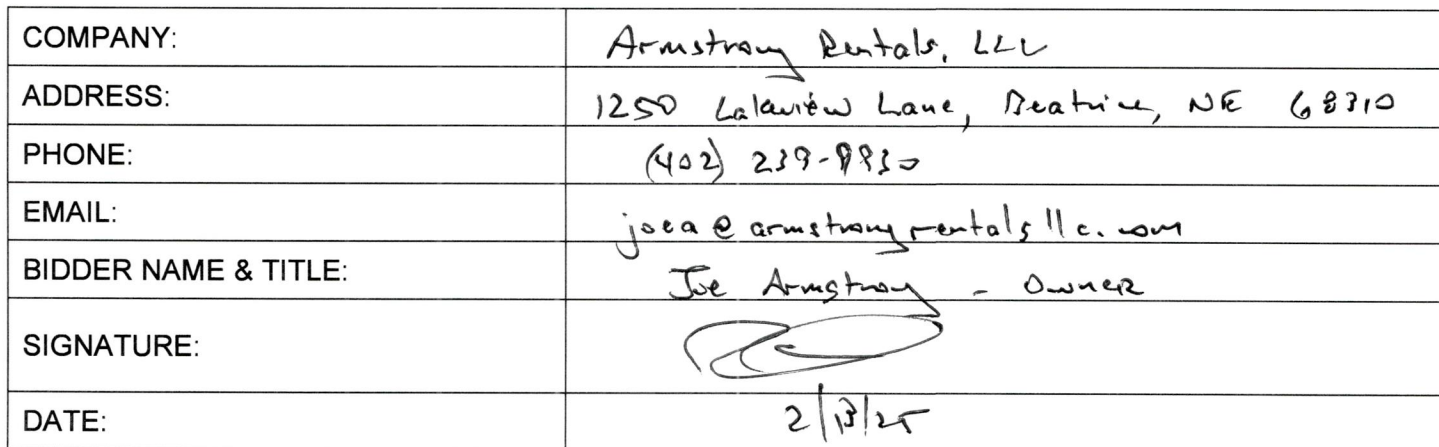 COMPANY: Armstrong Rentals, LLC
ADDRESS: 1250 Lakeview Lane, Beatrice, NE 68310
PHONE: (402) 239-9930
EMAIL: joea@armstrongrentalsllc.com
BIDDER NAME & TITLE: Joe Armstrong - Owner
SIGNATURE:
DATE: 2/13/25